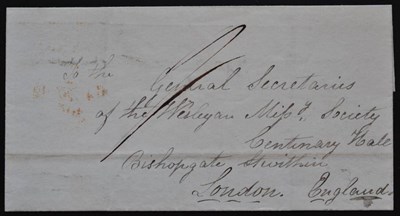 To the
General Secretaries
of the Wesleyan Missy. Society
Centenary Hall
Bishopgate within
London. England.